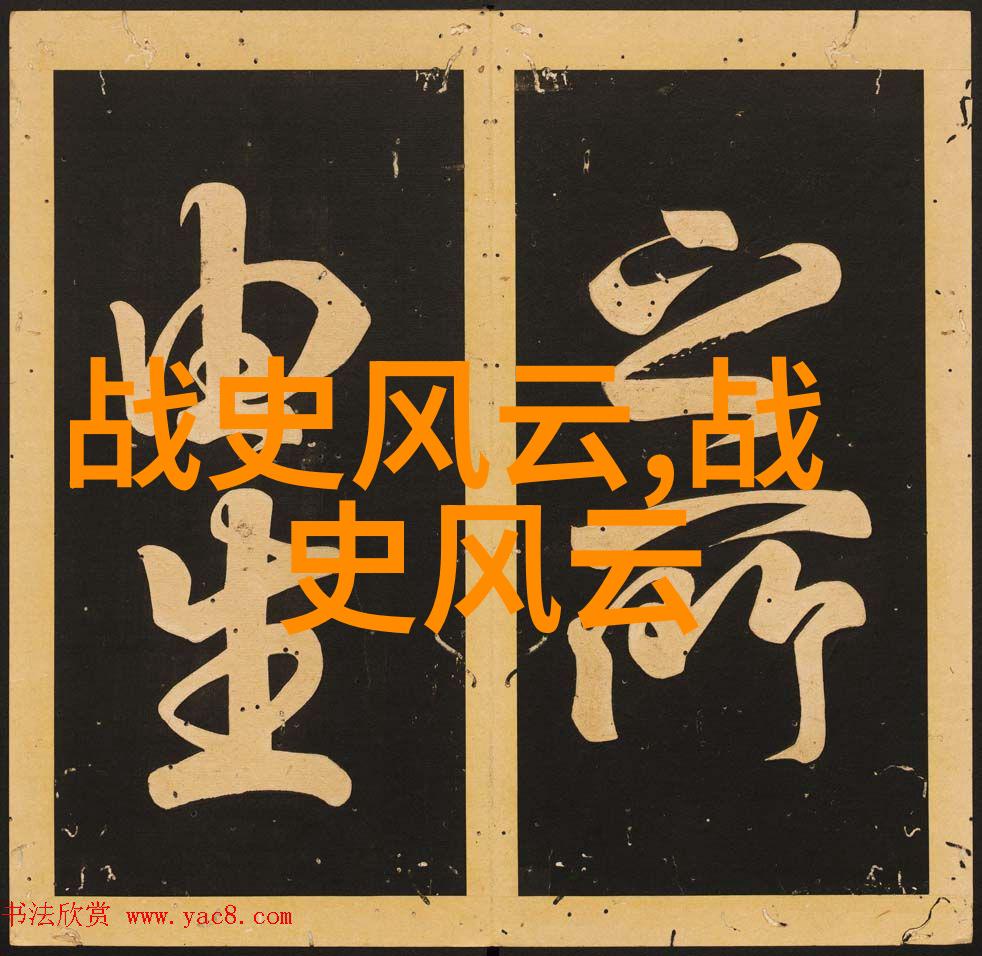 战史风云,战
史风云
之所
由生
书法欣赏 www.yac8.com